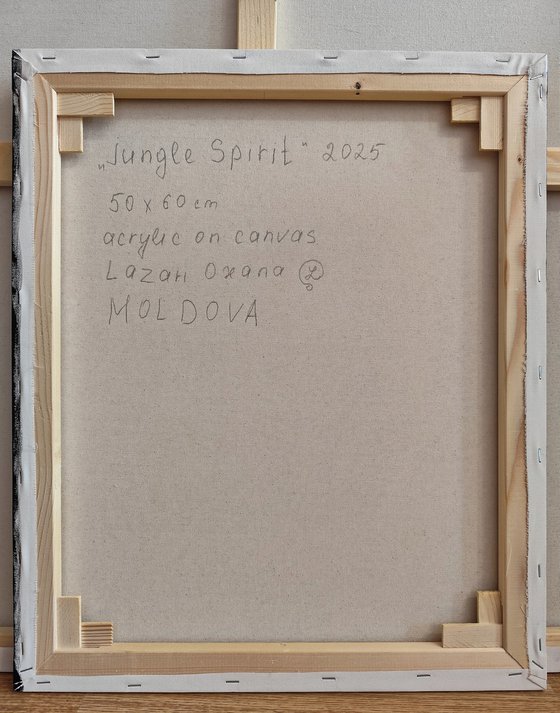 „Jungle Spirit" 2025
50 x 60 cm
acrylic on canvas
Lazari Oxana
MOLDOVA